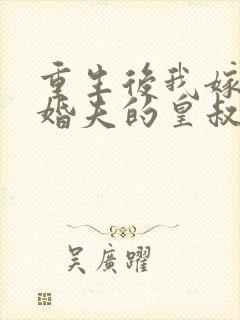 重生後我嫁
婚夫的皇叔
吳廣躍